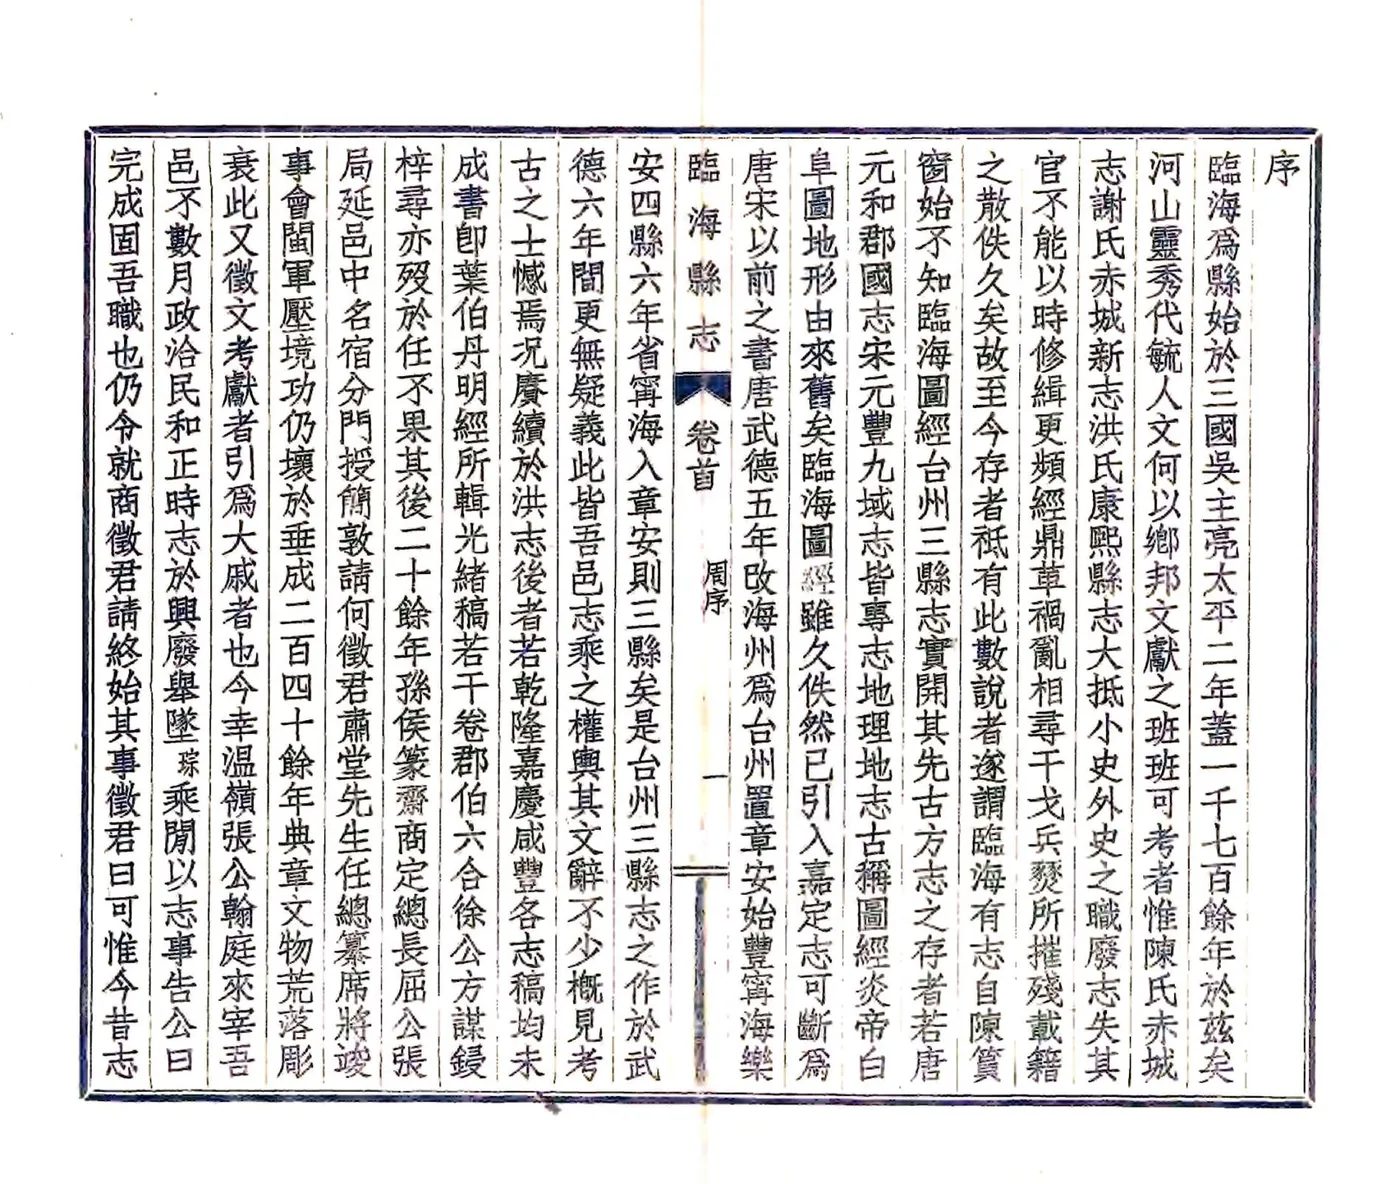 序
臨海爲縣始於三國吳主亮太平二年蓋一千七百餘年於茲矣
河山靈秀代毓人文何以鄉邦文獻之班班可考者惟陳氏赤城
志謝氏赤城新志洪氏康熙縣志大抵小史外史之職廢志失其
官不能以時修緝更頻經鼎革禍亂相尋干戈兵燹所摧殘載籍
之散佚久矣故至今存者祗有此數說者遂謂臨海有志自陳篔
窗始不知臨海圖經台州三縣志實開其先古方志之存者若唐
元和郡國志宋元豐九域志皆專志地理地志古稱圖經炎帝白
阜圖地形由來舊矣臨海圖經雖久佚然已引入嘉定志可斷爲
唐宋以前之書唐武德五年改海州爲台州置章安始豐寗海樂
臨海縣志
卷首
周序
一
安四縣六年省寗海入章安則三縣矣是台州三縣志之作於武
德六年間更無疑義此皆吾邑志乘之權輿其文辭不少概見考
古之士憾焉況賡續於洪志後者若乾隆嘉慶咸豐各志稿均未
成書卽葉伯丹明經所輯光緒稿若干卷郡伯六合徐公方謀鋟
梓尋亦歿於任不果其後二十餘年孫侯篆齋商定總長屈公張
局延邑中名宿分門授簡敦請何徵君肅堂先生任總纂席將竣
事會閩軍壓境功仍壞於垂成二百四十餘年典章文物荒落彫
衰此又徵文考獻者引爲大戚者也今幸溫嶺張公翰庭來宰吾
邑不數月政洽民和正時志於興廢舉墜琮乘閒以志事告公曰
完成固吾職也仍令就商徵君請終始其事徵君曰可惟今昔志